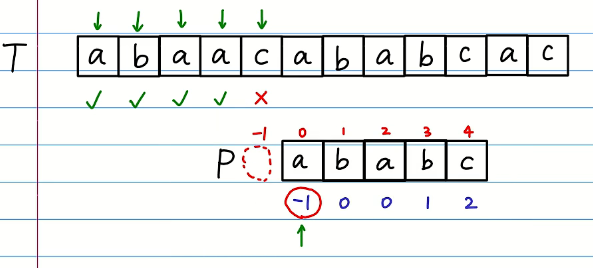 T a b a a c a b a b c a c
✓ ✓ ✓ ✓ ×
-1 0 1 2 3 4
P a b a b c
-1 0 0 1 2